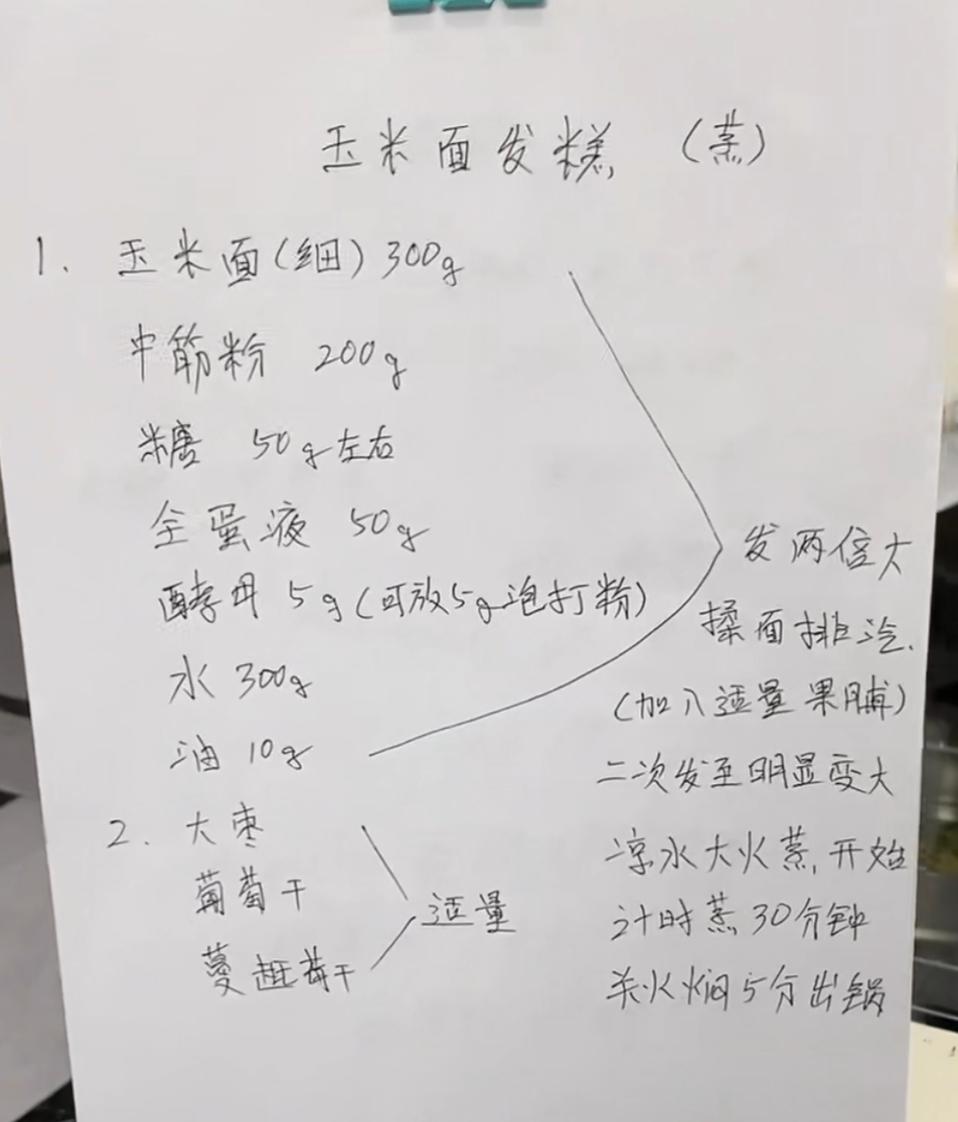 玉米面发糕 （蒸）
1. 玉米面(细) 300g
中筋粉 200g
糖 50g左右
全蛋液 50g
酵母 5g (可放5g泡打粉)
水 300g
油 10g
发两倍大
揉面排汽.
(加入适量果脯)
二次发至明显变大
凉水大火蒸,开始
计时蒸30分钟
关火焖5分出锅
2. 大枣
葡萄干
蔓越莓干
适量